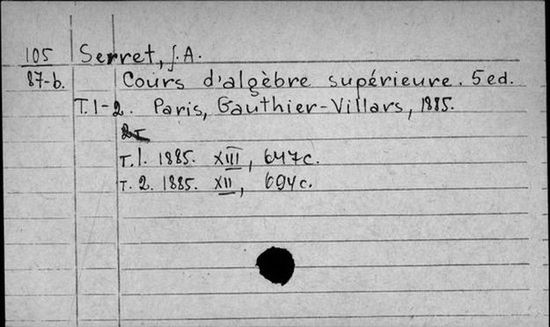 105 Serret, J. A.
87-b. Cours d'algèbre supérieure. 5 ed.
T. 1-2. Paris, Gauthier-Villars, 1885.
T. 1. 1885. XIII, 647c.
T. 2. 1885. XII, 694c.